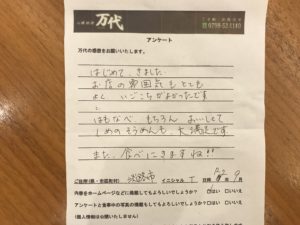 万代
0799-52-1140
アンケート
万代の感想をお願いいたします。
はじめて、きました
お店の雰囲気も とても
よく いごこちがよかったです
はもなべ もちろん おいしくて
〆のそうめんも、大満足です
また、食べにきますね!!
ご住所(県・市区町村) 淡路市 イニシャル T
内容をホームページなどに掲載してもよろしいでしょうか? □はい □いいえ
アンケートと食事中の写真の掲載してもよろしいでしょうか? □
(個人情報は公開いたしません)